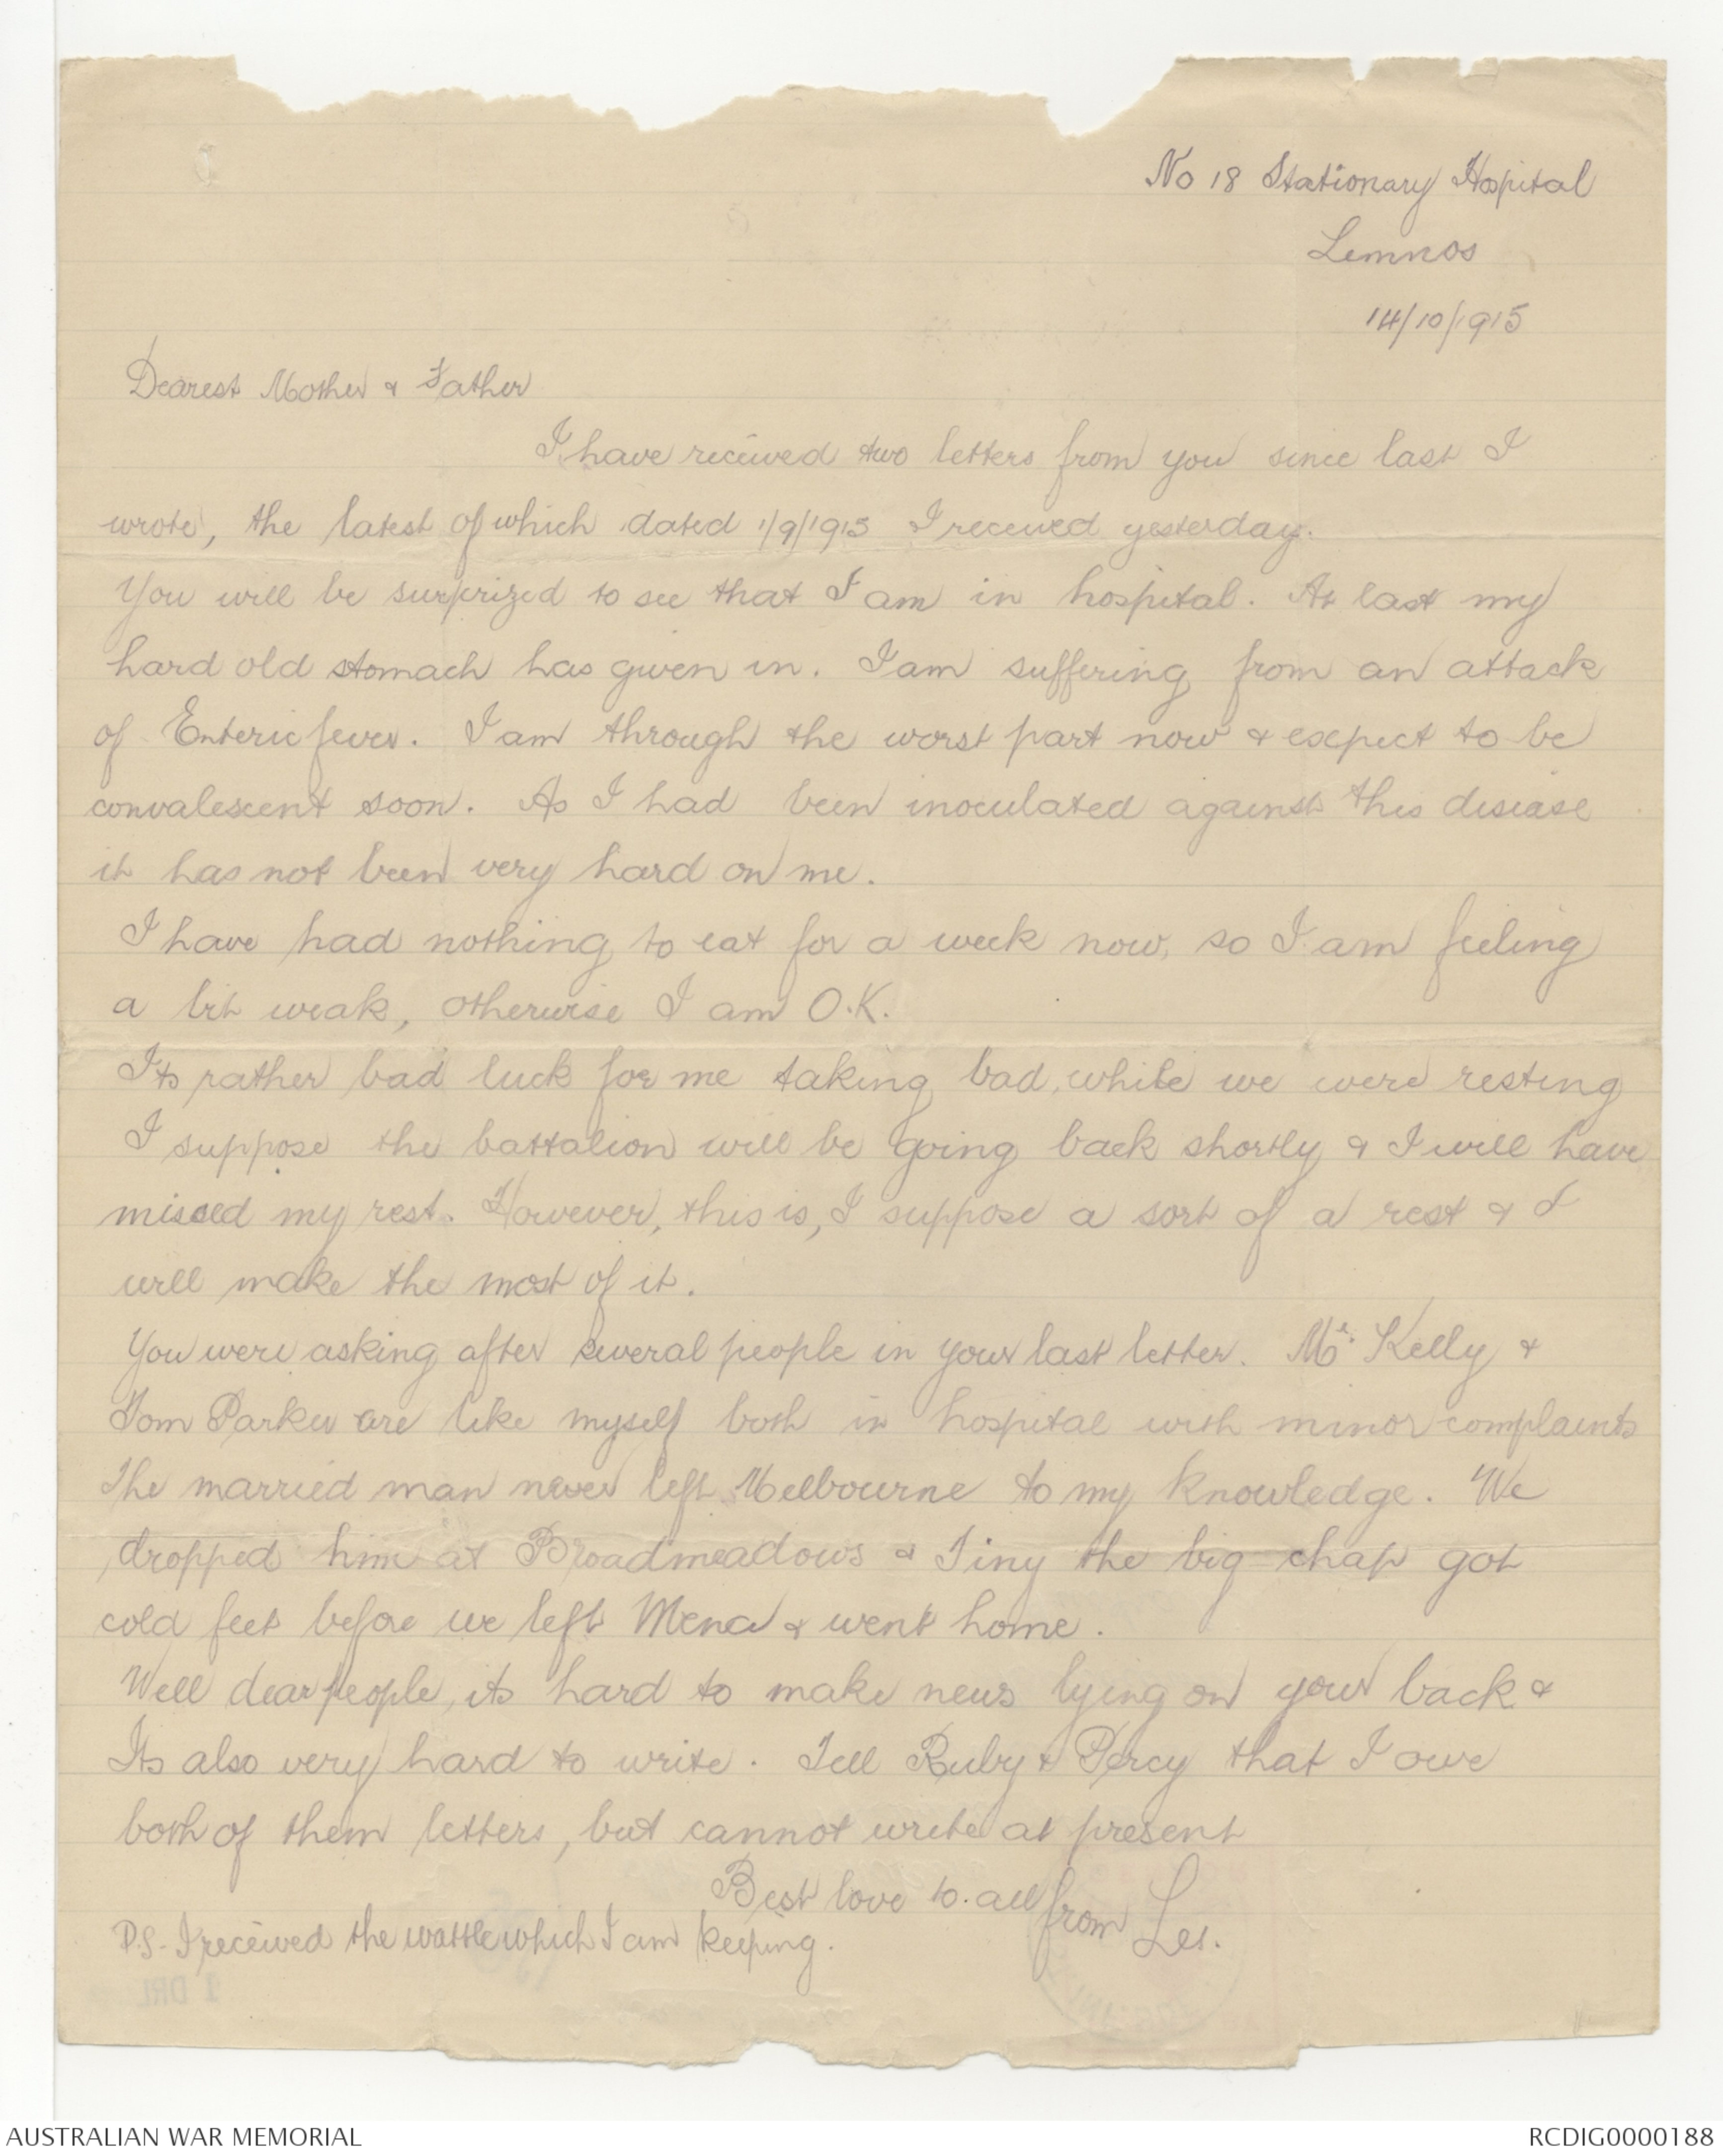 No 18 Stationary Hospital
Lemnos
14/10/1915
Dearest Mother & Father
I have received two letters from you since last I
wrote, the latest of which dated 1/9/1915 I received yesterday.
You will be surprized to see that I am in hospital. At last my
hard old stomach has given in. I am suffering from an attack
of Enteric fever. I am through the worst part now & expect to be
convalescent soon. As I had been inoculated against this disease
it has not been very hard on me.
I have had nothing to eat for a week now, so I am feeling
a bit weak, otherwise I am O.K.
Its rather bad luck for me taking bad, while we were resting
I suppose the battalion will be going back shortly & I will have
missed my rest. However, this is, I suppose a sort of a rest & I
will make the most of it.
You were asking after several people in your last letter. Mr. Kelly &
Tom Parker are like myself both in hospital with minor complaints
The married man never left Melbourne to my knowledge. We
dropped him at Broadmeadows & Tiny the big chap got
cold feet before we left Mena & went home.
Well dear people, its hard to make news lying on your back &
Its also very hard to write. Tell Ruby & Percy that I owe
both of them letters, but cannot write at present
Best love to all from Les.
P.S. I received the wattle which I am keeping.
1 DRL
AUSTRALIAN WAR MEMORIAL
RCDIG0000188